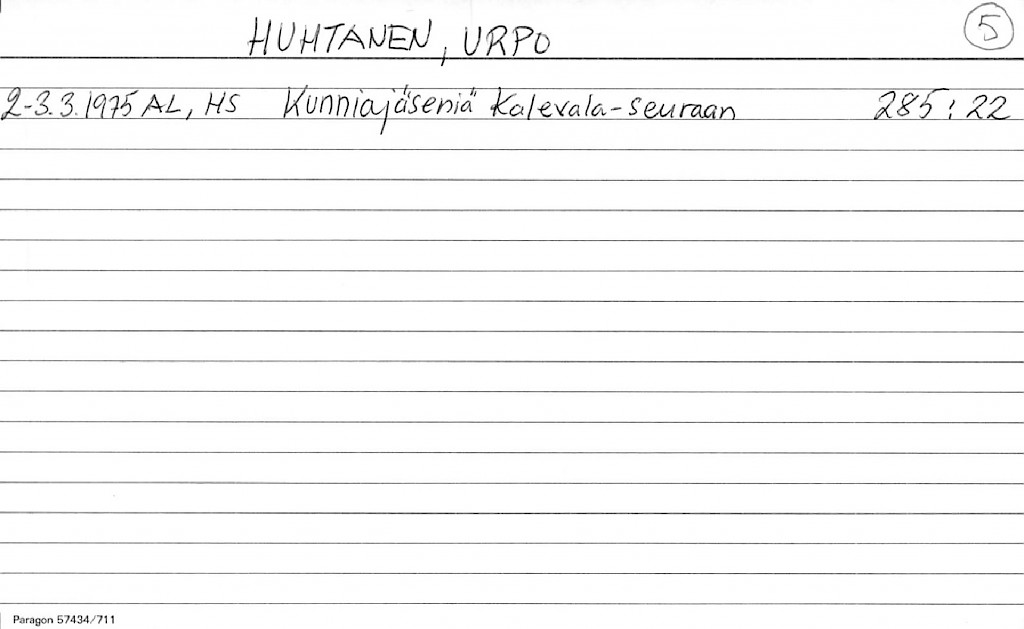 HUHTANEN, URPO
5
2-3.3.1975 AL, HS Kunniajäseniä Kalevala-seuraan 285:22
Paragon 57434/711